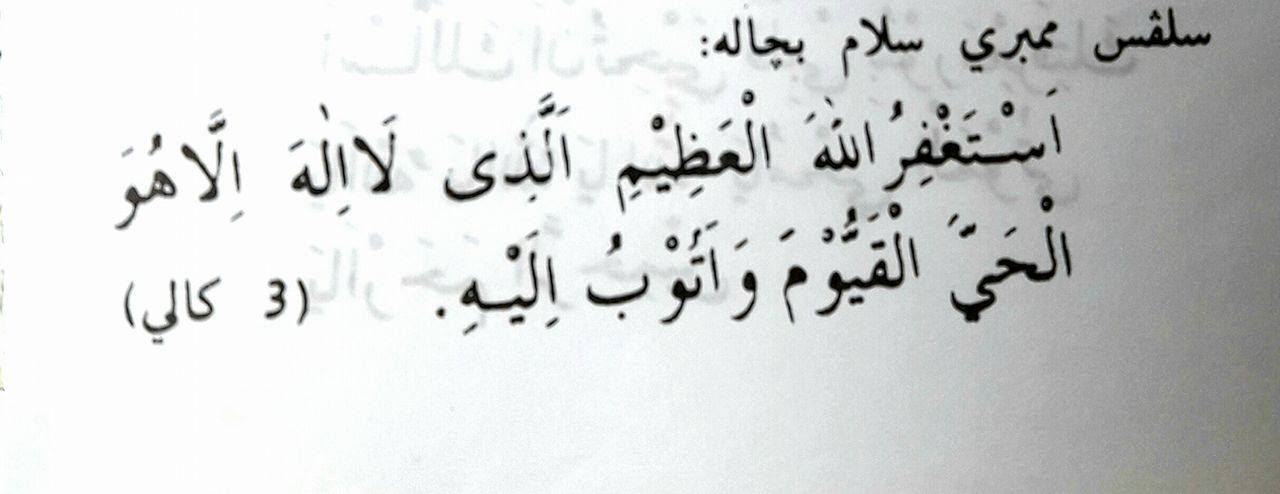 سلڤس ممبري سلام بچاله:
اَسْتَغْفِرُ اللّٰهَ الْعَظِيْمِ اَلَّذِى لَا اِلٰهَ اِلَّا هُوَ
الْحَيَّ الْقَيُّوْمَ وَاَتُوْبُ اِلَيْهِ. (3 كالي)